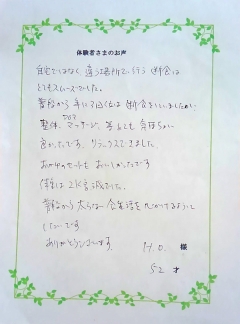 体験者さまのお声
自宅ではなく違う場所で行う断食は
とてもスムーズでした。
普段から年に7日くらいは断食をしていましたが
整体、マッサージ、等とても気持ちよい
良かったです。リラックスできました。
おかゆのセットもおいしかったです
体重は2K減でした。
普段から太らない食生活を心がけるように
したいです
ありがとうございます。
H.O. 様
52 才